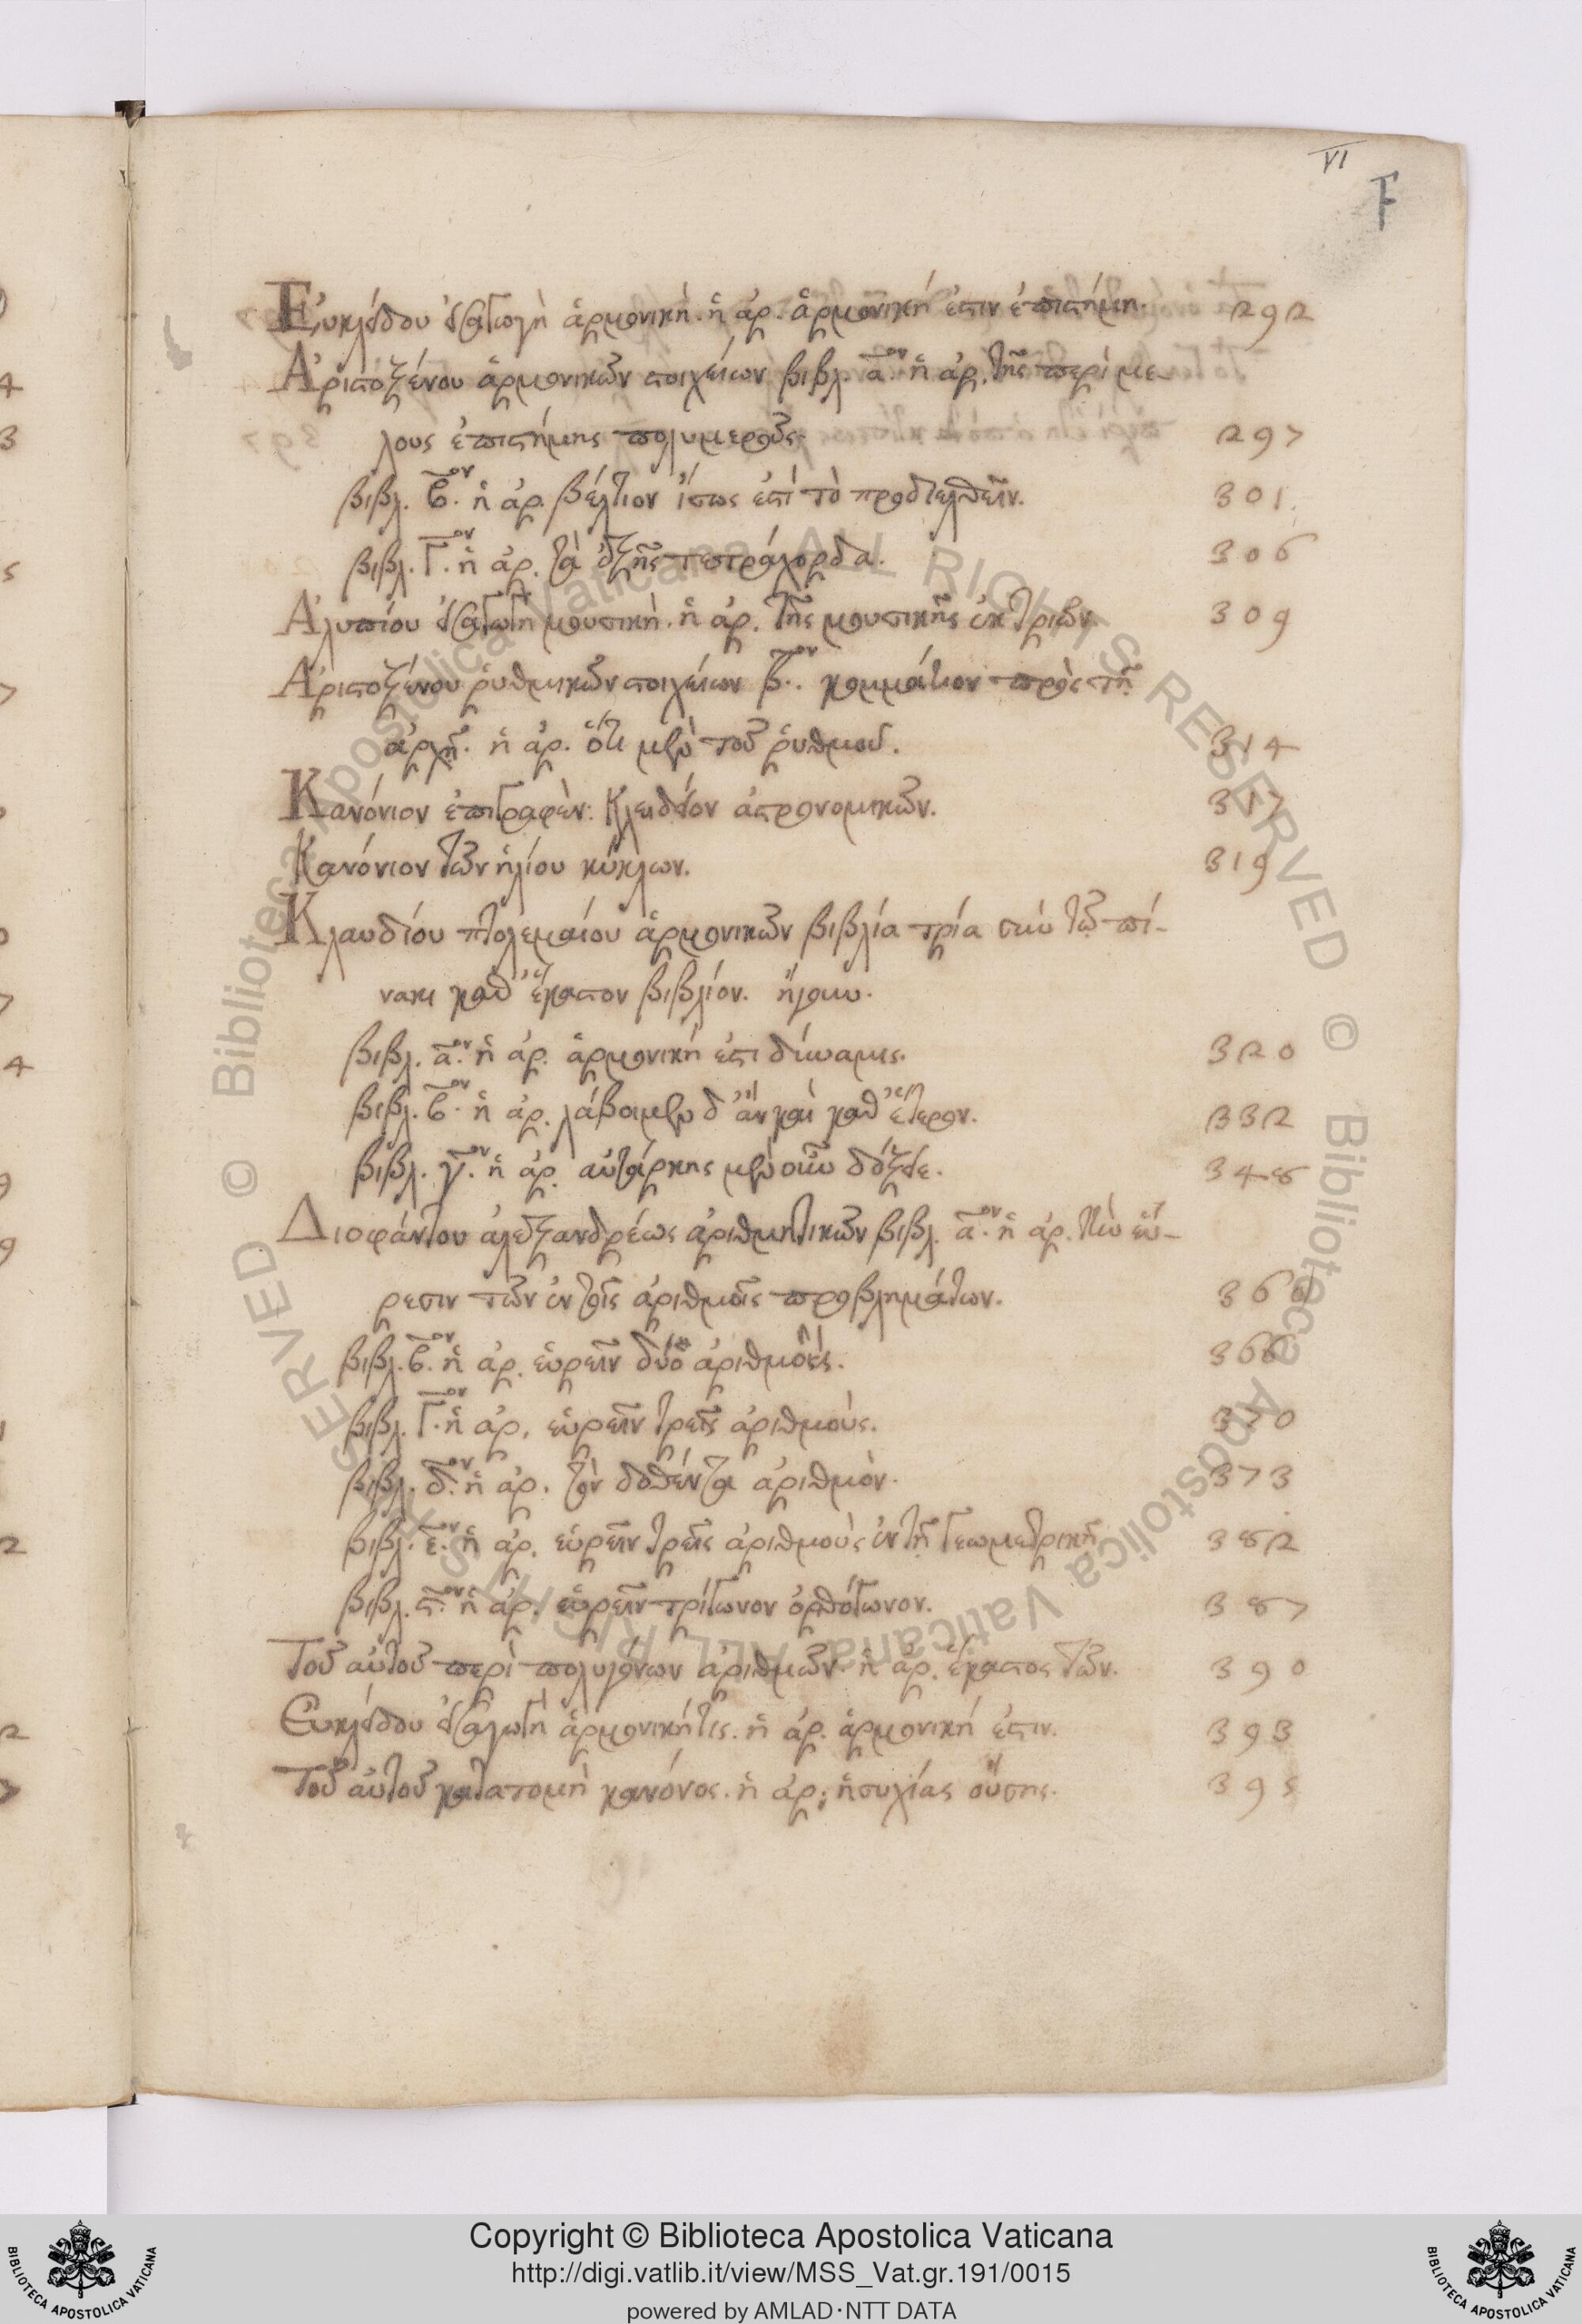 VI
F
Εὐκλείδου εἰσαγωγὴ ἁρμονικὴ. ἡ ἀρ. ἁρμονική ἐστιν ἐπιστήμη. 292
Ἀριστοξένου ἁρμονικῶν στοιχείων βιβλ. α̅ον. ἡ ἀρ. τῆς περὶ με-
λους ἐπιστήμης πολυμεροῦς. 297
βιβλ. β̅ον. ἡ ἀρ. βέλτιον ἴσως ἐστὶ τὸ προδιελθεῖν. 301.
βιβλ. Γ̅ον. ἡ ἀρ. τὰ ἑξῆς τετράχορδα. 306
Ἀλυπίου εἰσαγωγὴ μουσικὴ. ἡ ἀρ. τῆς μουσικῆς ἐκ τριῶν 309
Ἀριστοξένου ῥυθμικῶν στοιχείων β̅ον. κομμάτιον πρὸς τῇ
ἀρχῇ. ἡ ἀρ. ὅτι μὲν τοῦ ῥυθμοῦ. 314
Κανόνιον ἐπιγραφὲν: Κλειδίον ἀστρονομικῶν. 317
Κανόνιον τῶν ἡλίου κύκλων. 319
Κλαυδίου πτολεμαίου ἁρμονικῶν βιβλία τρία σὺν τῷ πί-
νακι καθ' ἕκαστον βιβλίον. ἤγουν.
βιβλ. α̅ον. ἡ ἀρ. ἁρμονική ἐστι δύναμις. 320
βιβλ. β̅ον. ἡ ἀρ. λάβοιμεν δ' ἂν καὶ καθ' ἕτερον. 332
βιβλ. γ̅ον. ἡ ἀρ. αὐτάρκης μὲν οὖν δόξειε. 348
Διοφάντου ἀλεξανδρέως ἀριθμητικῶν βιβλ. α̅ον. ἡ ἀρ. τὴν εὕ-
ρεσιν τῶν ἐν τοῖς ἀριθμοῖς προβλημάτων.
βιβλ. β̅ον. ἡ ἀρ. εὑρεῖν δύο ἀριθμοὺς. 366
βιβλ. Γ̅ον. ἡ ἀρ. εὑρεῖν τρεῖς ἀριθμοὺς. 370
βιβλ. δ̅ον. ἡ ἀρ. τὸν δοθέντα ἀριθμὸν. 373
βιβλ. ε̅ον. ἡ ἀρ. εὑρεῖν τρεῖς ἀριθμοὺς ἐν τῇ γεωμετρικῇ 382
βιβλ. ϛ̅ον. ἡ ἀρ. εὑρεῖν τρίγωνον ὀρθόγωνον. 387
Τοῦ αὐτοῦ περὶ πολυγόνων ἀριθμῶν. ἡ ἀρ. ἕκαστος τῶν. 390
Εὐκλείδου εἰσαγωγὴ ἁρμονική τις. ἡ ἀρ. ἁρμονική ἐστιν. 393
Τοῦ αὐτοῦ κατατομὴ κανόνος. ἡ ἀρ. ἡσυχίας οὔσης. 395
© Biblioteca Apostolica Vaticana ALL RIGHTS RESERVED © Biblioteca Apostolica Vaticana ALL RIGHTS RESERVED
Copyright © Biblioteca Apostolica Vaticana
http://digi.vatlib.it/view/MSS_Vat.gr.191/0015
powered by AMLAD·NTT DATA
BIBLIOTECA APOSTOLICA VATICANA
BIBLIOTECA APOSTOLICA VATICANA